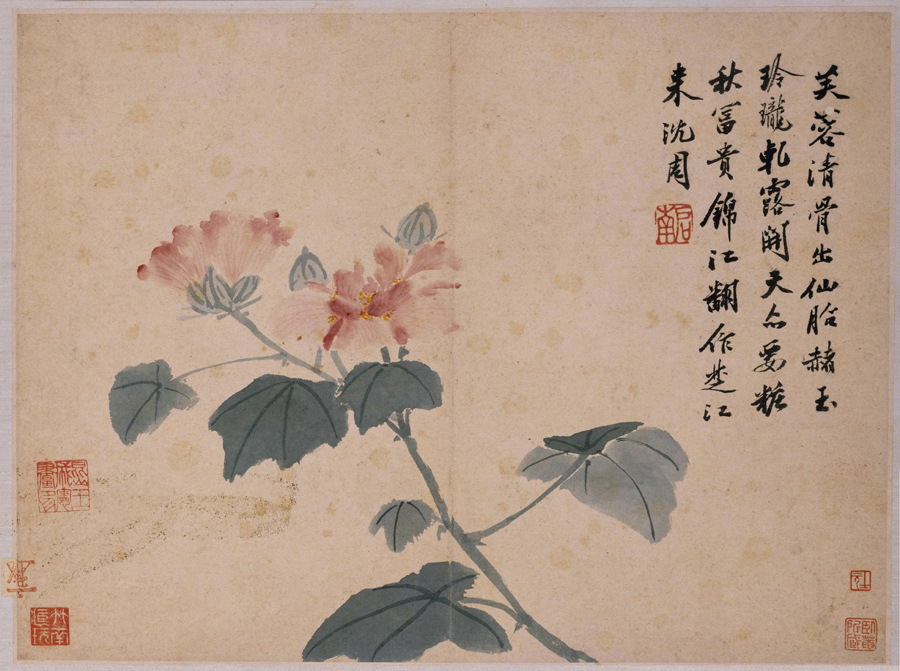 芙蓉清骨出仙胎赭玉
玲瓏軋露開天亦要粧
秋富貴錦江翻作楚江
来沈周
启南